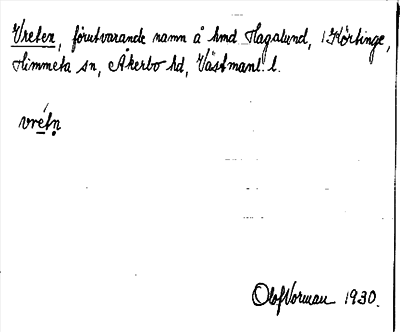 Vreten, förutvarande namn å hmd Hagalund, 1 Hörtinge,
Himmeta sn, Åkerbo hd, Västmanl. l.
vrétṇ
Olof Vorman 1930.